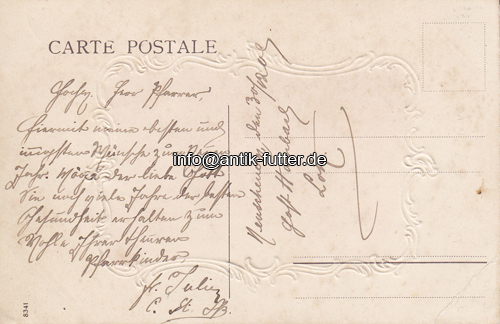 CARTE POSTALE
Hochw. Herr Pfarrer,
Hiermit meine besten und
innigsten Wünsche zum Neuen
Jahr. Möge der liebe Gott
Sie noch viele Jahre der besten
Gesundheit erhalten zum
Wohle Ihrer theuren
Pfarrkinder
den 30/
Gast
info@antik-futter.de
8341